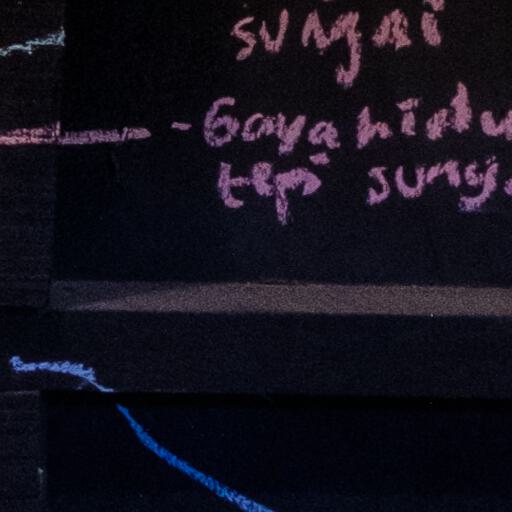 sungai
- Gaya hidu
tepi sunga